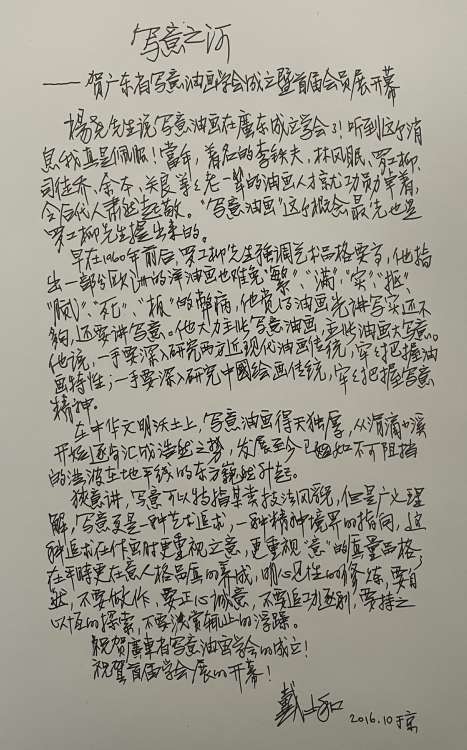 写意之河
——贺广东省写意油画学会成立暨首届会员展开幕
杨尧先生说写意油画在廣东成立学会了！听到这个消
息我真是佩服！當年，著名的李铁夫、林风眠、罗工柳、
司徒乔、余本、关良等老一辈的油画人才就功勋卓着，
令后代人肃然起敬。“写意油画”这个概念最先也是
罗工柳先生提出来的。
早在1960年前后，罗工柳先生强调艺术品格要高，他指
出一部分欧洲的洋油画也难免“繁”、“满”、“实”、“抠”、
“腻”、“死”、“板”的弊病，他觉得油画光讲写实还不
夠，还要讲写意。他大力主张写意油画，主张油画大写意。
他说，一手要深入研究西方近现代油画传统，牢牢把握油
画特性；一手要深入研究中國绘画传统，牢牢把握写意
精神。
在中华文明沃土上，写意油画得天独厚，从涓滴小溪
开始逐步汇成浩然之势，发展至今已如不可阻挡
的洪波在地平线的东方巍然升起。
狭意讲，写意可以特指某常技法风貌，但是广义理
解，写意更是一种艺术追求，一种精神境界的指向，这
种追求在作画时更重视立意，更重视“意”的真量品格，
在平時更在意人格品位的养成，明心见性的修炼，要自
然，不要做作，要正心诚意，不要追功逐利，要持之
以恒的探索，不要浅尝辄止的浮躁。
祝贺廣東省写意油画学会的成立！
祝贺首届学会展的开幕！
戴士和 2016.10于京